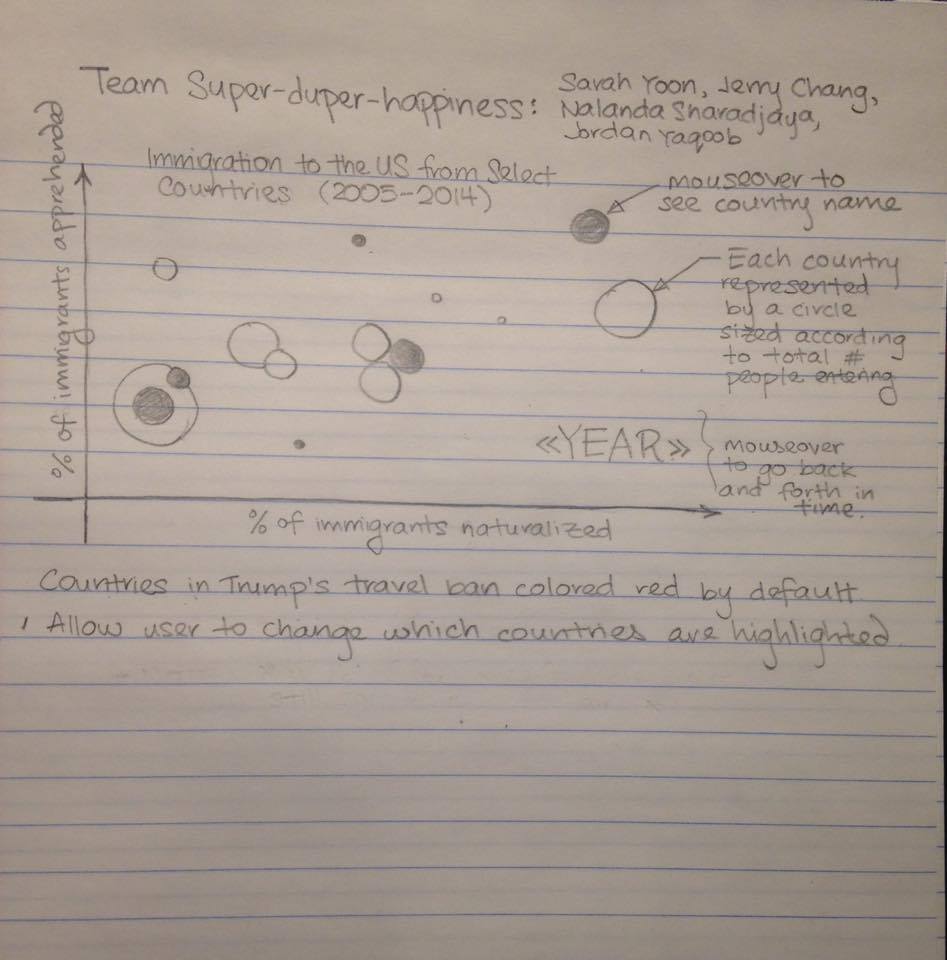 Team Super-duper-happiness:
Sarah Yoon, Jerry Chang,
Nalanda Sharadjaya,
Jordan Yaqoob
Immigration to the US from Select
Countries (2005-2014)
% of immigrants apprehended
mouseover to
see country name
Each country
represented
by a circle
sized according
to total #
people entering
«YEAR»
mouseover
to go back
and forth in
time.
% of immigrants naturalized
Countries in Trump's travel ban colored red by default
Allow user to change which countries are highlighted